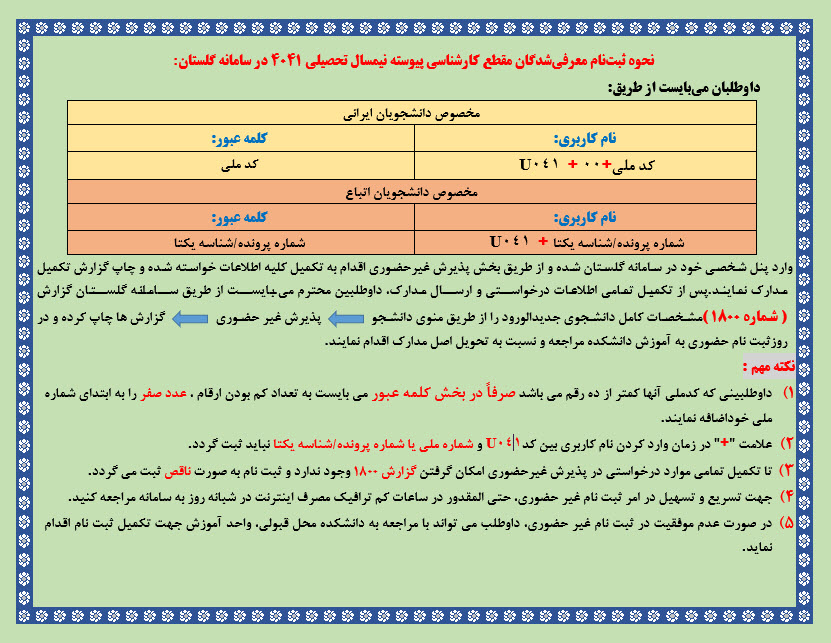 نحوه ثبت‌نام معرفی‌شدگان مقطع کارشناسی پیوسته نیمسال تحصیلی ۴۰۴۱ در سامانه گلستان:
داوطلبان می‌بایست از طریق:
مخصوص دانشجویان ایرانی
نام کاربری: کلمه عبور:
کد ملی+۰۰ + U۰٤۱ کد ملی
مخصوص دانشجویان اتباع
نام کاربری: کلمه عبور:
شماره پرونده/شناسه یکتا + U۰٤۱ شماره پرونده/شناسه یکتا
وارد پنل شخصی خود در سامانه گلستان شده و از طریق بخش پذیرش غیرحضوری اقدام به تکمیل کلیه اطلاعات خواسته شده و چاپ گزارش تکمیل
مدارک نمایند.پس از تکمیل تمامی اطلاعات درخواستی و ارسال مدارک، داوطلبین محترم می‌بایست از طریق سامانه گلستان گزارش
( شماره ۱۸۰۰)مشخصات کامل دانشجوی جدیدالورود را از طریق منوی دانشجو پذیرش غیر حضوری گزارش ها چاپ کرده و در
روزثبت نام حضوری به آموزش دانشکده مراجعه و نسبت به تحویل اصل مدارک اقدام نمایند.
نکته مهم :
۱) داوطلبینی که کدملی آنها کمتر از ده رقم می باشد صرفاً در بخش کلمه عبور می بایست به تعداد کم بودن ارقام ، عدد صفر را به ابتدای شماره
ملی خوداضافه نمایند.
۲) علامت "+" در زمان وارد کردن نام کاربری بین کد U۰٤۱ و شماره ملی یا شماره پرونده/شناسه یکتا نباید ثبت گردد.
۳) تا تکمیل تمامی موارد درخواستی در پذیرش غیرحضوری امکان گرفتن گزارش ۱۸۰۰ وجود ندارد و ثبت نام به صورت ناقص ثبت می گردد.
۴) جهت تسریع و تسهیل در امر ثبت نام غیر حضوری، حتی المقدور در ساعات کم ترافیک مصرف اینترنت در شبانه روز به سامانه مراجعه کنید.
۵) در صورت عدم موفقیت در ثبت نام غیر حضوری، داوطلب می تواند با مراجعه به دانشکده محل قبولی، واحد آموزش جهت تکمیل ثبت نام اقدام
نماید.